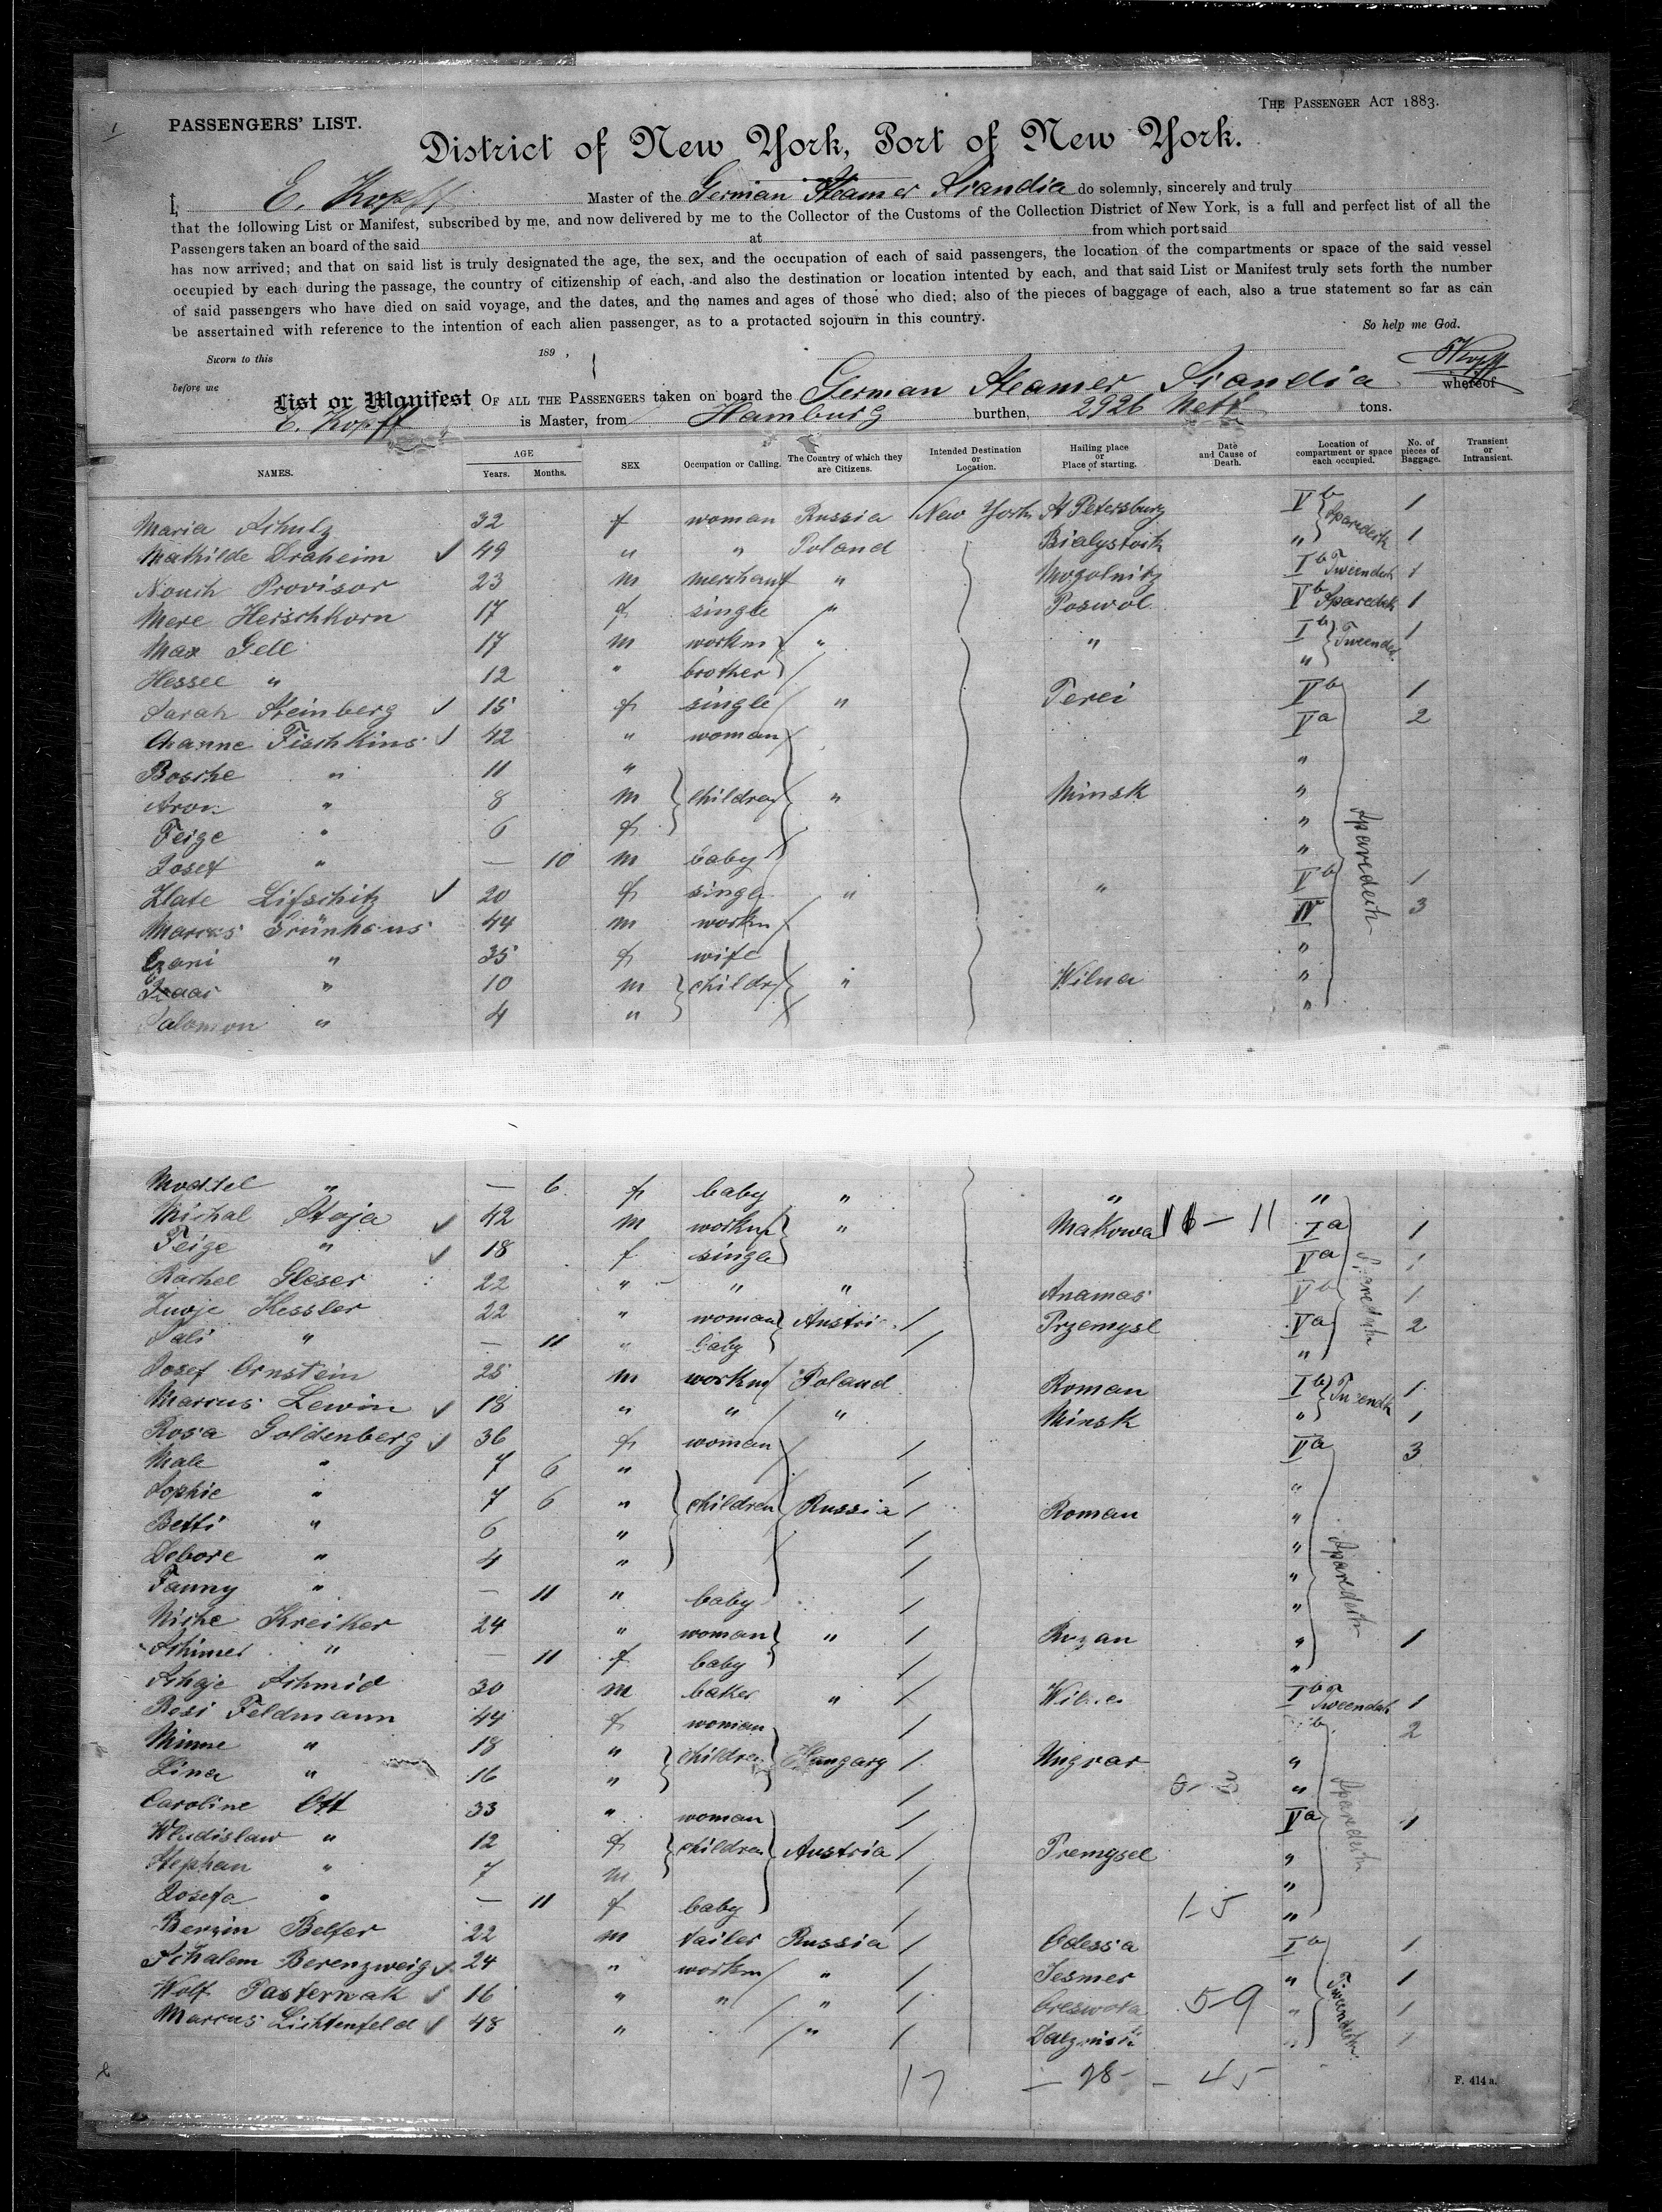 THE PASSENGER ACT 1883.
PASSENGERS' LIST.
District of New York, Port of New York.
I, E. Kopff Master of the German Steamer Scandia do solemnly, sincerely and truly
that the following List or Manifest, subscribed by me, and now delivered by me to the Collector of the Customs of the Collection District of New York, is a full and perfect list of all the
Passengers taken an board of the said at from which port said
has now arrived; and that on said list is truly designated the age, the sex, and the occupation of each of said passengers, the location of the compartments or space of the said vessel
occupied by each during the passage, the country of citizenship of each, and also the destination or location intented by each, and that said List or Manifest truly sets forth the number
of said passengers who have died on said voyage, and the dates, and the names and ages of those who died; also of the pieces of baggage of each, also a true statement so far as can
be assertained with reference to the intention of each alien passenger, as to a protacted sojourn in this country.
So help me God.
Sworn to this 189 ,
EKopff
before me
List or Manifest OF ALL THE PASSENGERS taken on board the German Steamer Scandia whereof
E. Kopff is Master, from Hamburg burthen, 2926 Nett tons.
NAMES. AGE Years. Months. SEX Occupation or Calling. The Country of which they are Citizens. Intended Destination or Location. Hailing place or Place of starting. Date and Cause of Death. Location of compartment or space each occupied. No. of pieces of Baggage. Transient or Intransient.
Maria Schulz 32 f woman Russia New York St Petersburg Vb Sparedeck 1
Mathilde Draheim 49 " " Poland Bialystock " 1
Nouch Provisor 23 m merchant " Mogolnitz Ib Tweendeck 1
Mere Herschkorn 17 f single " Poswol Vb Sparedeck 1
Max Gell 17 m workm " " Ib Tweendeck 1
Hessel " 12 " brother "
Sarah Steinberg 15 f single " Terei Vb 1
Channe Fischkins 42 " woman Va 2
Bosche " 11 " "
Aron " 8 m children " Minsk "
Feige " 6 f "
Josef " — 10 m baby "
Zlate Lifschitz 20 f single " " Vb 1
Marcus Grünhaus 44 m workm IV 3
" 35 f wife "
Isaac " 10 m childr " Wilna "
Salomon " 4 " "
Sparedeck
" — 6 f baby " " "
Michal Staja 42 m workm " Makowa 11 Ia 1
Feige " 18 f single Va 1
Rachel Gleser 22 " " " Anamas Vb 1
Hessler 22 " woman Austria Przemysl Va 2
Sali " — 11 " baby "
Sparedeck
Josef Ornstein 25 m workm Poland Roman Ib Tweendk 1
Marcus Lewin 18 " " " Minsk " 1
Rosa Goldenberg 36 f woman Va 3
Male " 7 6 " "
Sophie " 7 6 " children Russia Roman "
Betti " 6 " "
Debore " 4 " "
Fanny " — 11 " baby "
Niche Kreiker 24 " woman " Rozan " 1
Schimer " — 11 f baby "
Sparedeck
Schaje Schmid 30 m baker " Wilna Ib Tweendeck 1
Rosi Feldmann 44 f woman b 2
Minne " 18 " children Hungary Ungvar "
Lina " 16 " "
Caroline Ott 33 " woman Va 1
Wladislaw " 12 f children Austria Premysel "
Stephan " 7 m "
Josefa " — 11 f baby 15 "
Sparedeck
Benzin Belfer 22 m tailer Russia Odessa Ib 1
Schalem Berenzweig 24 " workm " Jesmer " 1
Wolf Pasternak 16 " " " 59 " 1
Marcus Lichtenfeld 48 " " " 1
Tweendeck
17 — 28 — 45
F. 414 a.